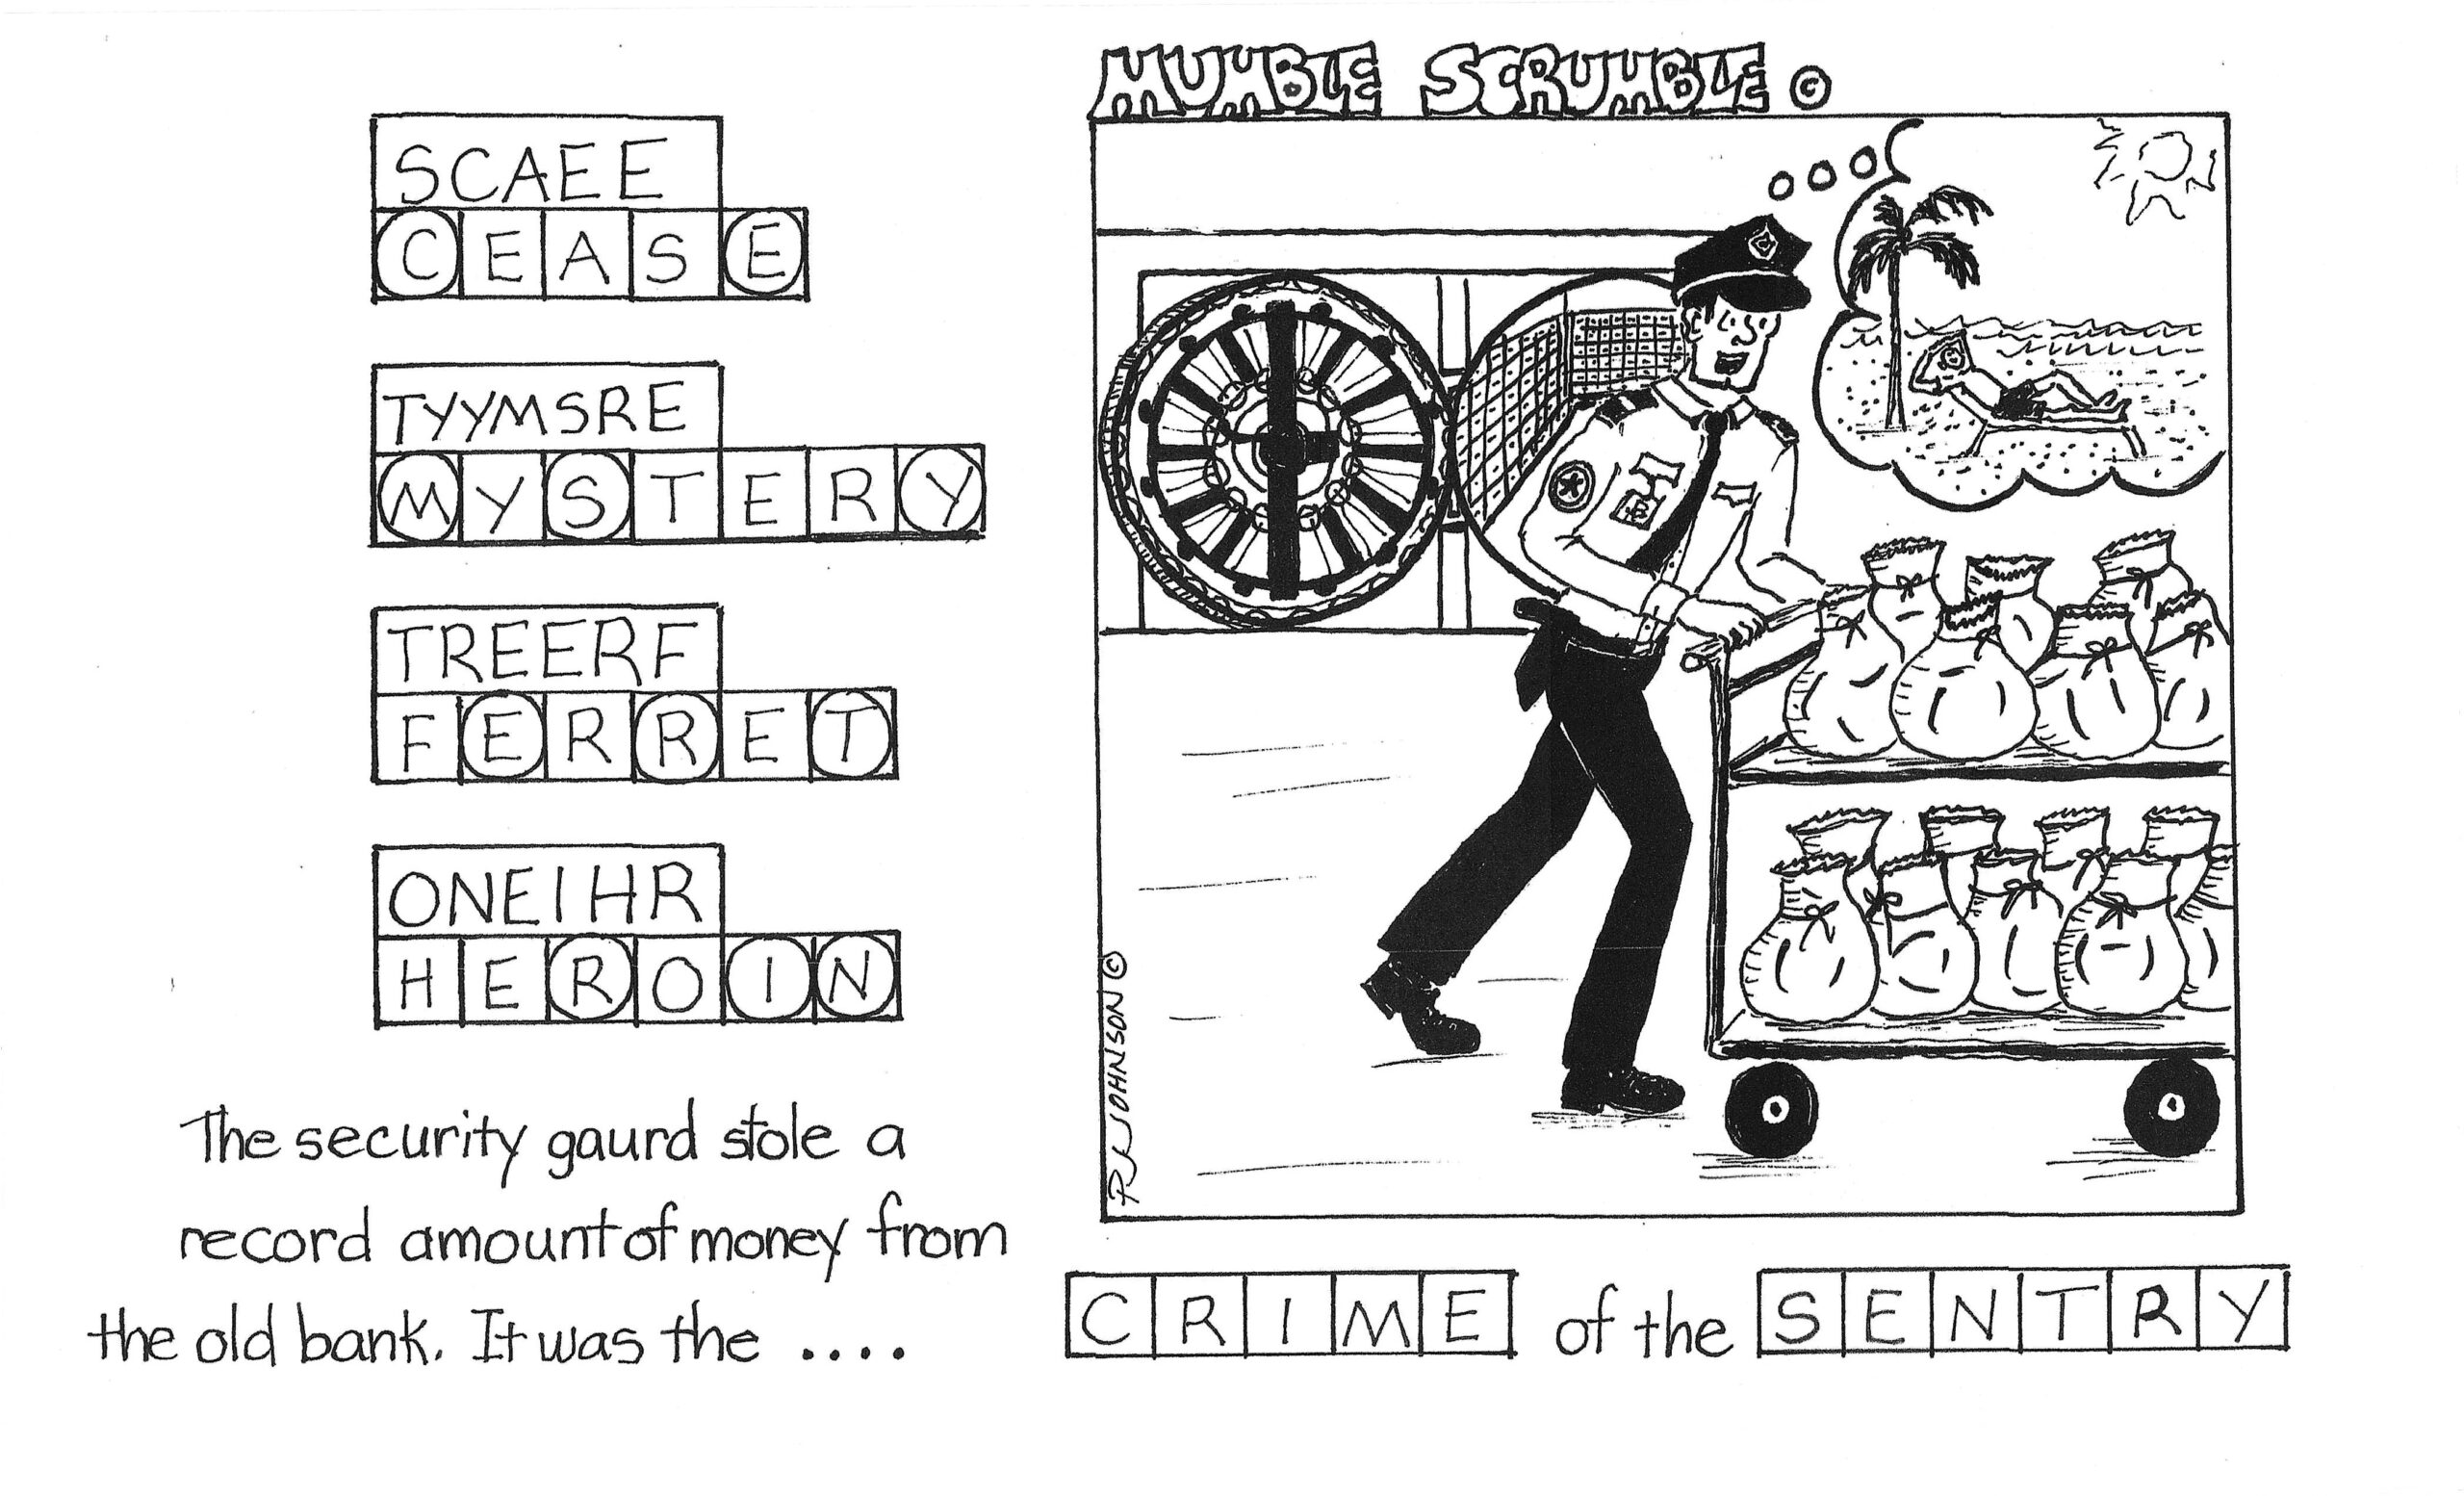 MUMBLE SCRUMBLE ©
SCAEE
CEASE
TYYMSRE
MYSTERY
TREERF
FERRET
ONEIHR
HEROIN
The security gaurd stole a
record amount of money from
the old bank. It was the ....
PJ JOHNSON ©
CRIME of the SENTRY